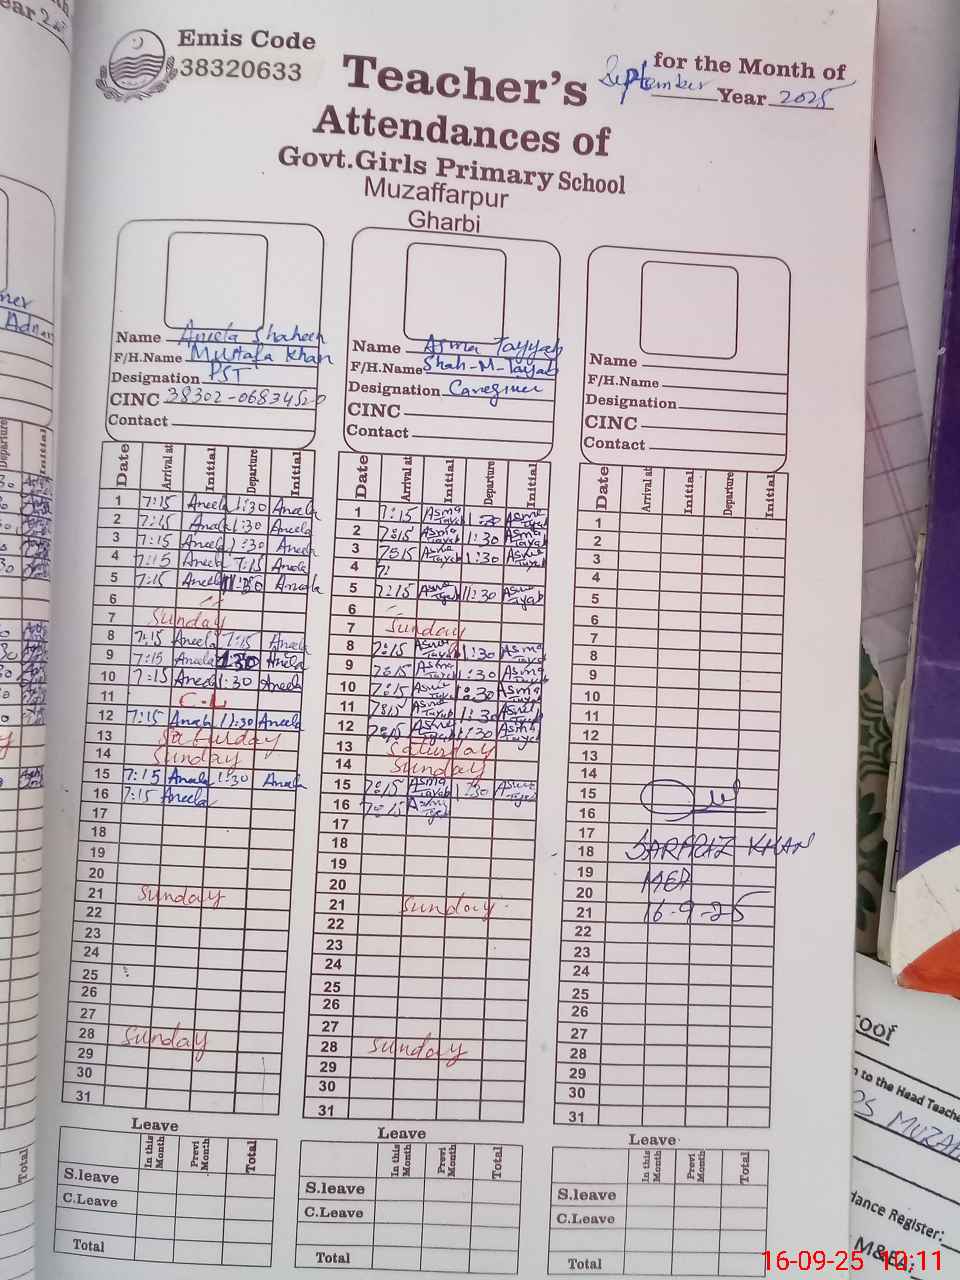 Emis Code
38320633
for the Month of
September Year 2025
Teacher's
Attendances of
Govt.Girls Primary School
Muzaffarpur
Gharbi
Name Aneela Shaheen
F/H.Name Mustafa Khan
Designation PST
CINC 38302-0683452-0
Contact
Date Arrival at Initial Departure Initial
1 7:15 Aneela 1:30 Aneela
2 7:15 Aneela 1:30 Aneela
3 7:15 Aneela 1:30 Aneela
4 7:15 Aneela 7:15 Aneela
5 7:15 Aneela 11:30 Aneela
6
7 Sunday
8 7:15 Aneela 7:15 Aneela
9 7:15 Aneela 1:30 Aneela
10 7:15 Aneela 1:30 Aneela
11 C-L
12 7:15 Aneela 11:30 Aneela
13 Saturday
14 Sunday
15 7:15 Aneela 1:30 Aneela
16 7:15 Aneela
17
18
19
20
21 Sunday
22
23
24
25
26
27
28 Sunday
29
30
31
Leave
In this Month Previ Month Total
S.leave
C.Leave
Total
Name Asma Tayyab
F/H.Name Shah-M-Tayab
Designation Caregiver
CINC
Contact
Date Arrival at Initial Departure Initial
1 7:15 Asma Tayab 1:30 Asma Tayab
2 7:15 Asma Tayab 1:30 Asma Tayab
3 7:15 Asma Tayab 1:30 Asma Tayab
4 7:
5 7:15 Asma Tayab 11:30 Asma Tayab
6
7 Sunday
8 7:15 Asma Tayab 1:30 Asma Tayab
9 7:15 Asma Tayab 1:30 Asma Tayab
10 7:15 Asma Tayab 1:30 Asma Tayab
11 7:15 Asma Tayab 1:30 Asma Tayab
12 7:15 Asma Tayab 1:30 Asma Tayab
13 Saturday
14 Sunday
15 7:15 Asma Tayab 1:30 Asma Tayab
16 7:15 Asma Tayab
17
18
19
20
21 Sunday
22
23
24
25
26
27
28 Sunday
29
30
31
Leave
In this Month Previ Month Total
S.leave
C.Leave
Total
Name
F/H.Name
Designation
CINC
Contact
Date Arrival at Initial Departure Initial
1
2
3
4
5
6
7
8
9
10
11
12
13
14
15
16
17
18 SARFRAZ KHAN
19 MEA
20
21 16-9-25
22
23
24
25
26
27
28
29
30
31
Leave
In this Month Previ Month Total
S.leave
C.Leave
Total
to the Head Teache
dance Register:
M&EA:
16-09-25 10:11